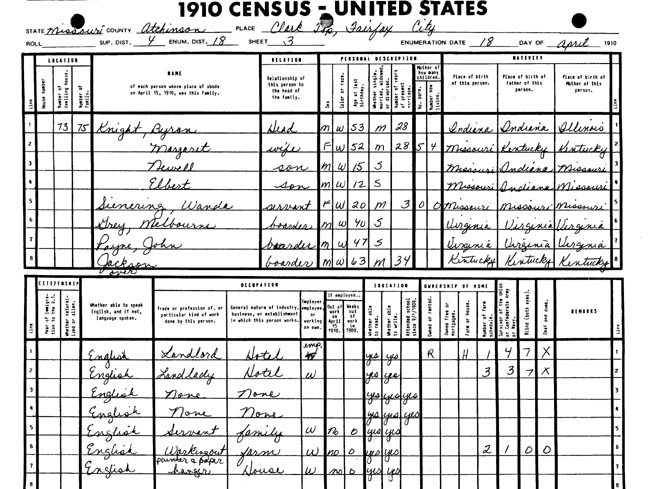 1910 CENSUS - UNITED STATES
STATE Missouri COUNTY Atchinson PLACE Clark Top, Fairfax City
ROLL SUP. DIST. 4 ENUM. DIST. 18 SHEET 3 ENUMERATION DATE 18 DAY OF April 1910
LOCATION PERSONAL DESCRIPTION NATIVITY
Line House number Number of dwelling house. Number of family. NAME of each person whose place of abode on April 15, 1910, was this family. RELATION Relationship of this person to the head of the family. Sex Color or race. Age at last birthday. Whether single, married, widowed, or divorced. Number of years of present marriage. Mother of how many children. No. born. Number now living. Place of birth of this person. Place of birth of Father of this person. Place of birth of Mother of this person. Line
1 73 75 Knight, Byron Head M W 53 M 28 Indiana Indiana Illinois 1
2 Margaret wife F W 52 M 28 5 4 Missouri Kentucky Kentucky 2
3 Newell son M W 15 S Missouri Indiana Missouri 3
4 Elbert son M W 12 S Missouri Indiana Missouri 4
5 Sienering, Wanda servant F W 20 M 3 0 0 Missouri Missouri Missouri 5
6 Grey, Melbourne boarder M W 40 S Virginia Virginia Virginia 6
7 Payne, John boarder M W 47 S Virginia Virginia Virginia 7
8 Jackson boarder M W 63 M 34 Kentucky Kentucky Kentucky 8
over
CITIZENSHIP OCCUPATION EDUCATION OWNERSHIP OF HOME
Line Year of immigration to the U.S. Whether naturalized or alien. Whether able to speak English, and if not, language spoken. Trade or profession of, or particular kind of work done by this person. General nature of industry, business, or establishment in which this person works. Employer, employee, or working on own. If employee.. Out of work on April 15 1910. Weeks out of work in 1909. Whether able to read. Whether able to write. Attended school since 9/1/1909. Owned or rented. Owned free or mortgaged. Farm or house. Number of farm schedule. Survivor of the Union or Confederate Army or Navy. Blind (both eyes). Deaf and dumb. REMARKS Line
1 English Landlord Hotel emp. yes yes R H 1 4 7 X 1
2 English Landlady Hotel W yes yes 3 3 7 X 2
3 English None None yes yes yes 3
4 English None None yes yes yes 4
5 English Servant family W no 0 yes yes 5
6 English Working out farm W no 0 yes yes 2 1 0 0 6
7 English painter & paper hanger House W no 0 yes yes 7
8